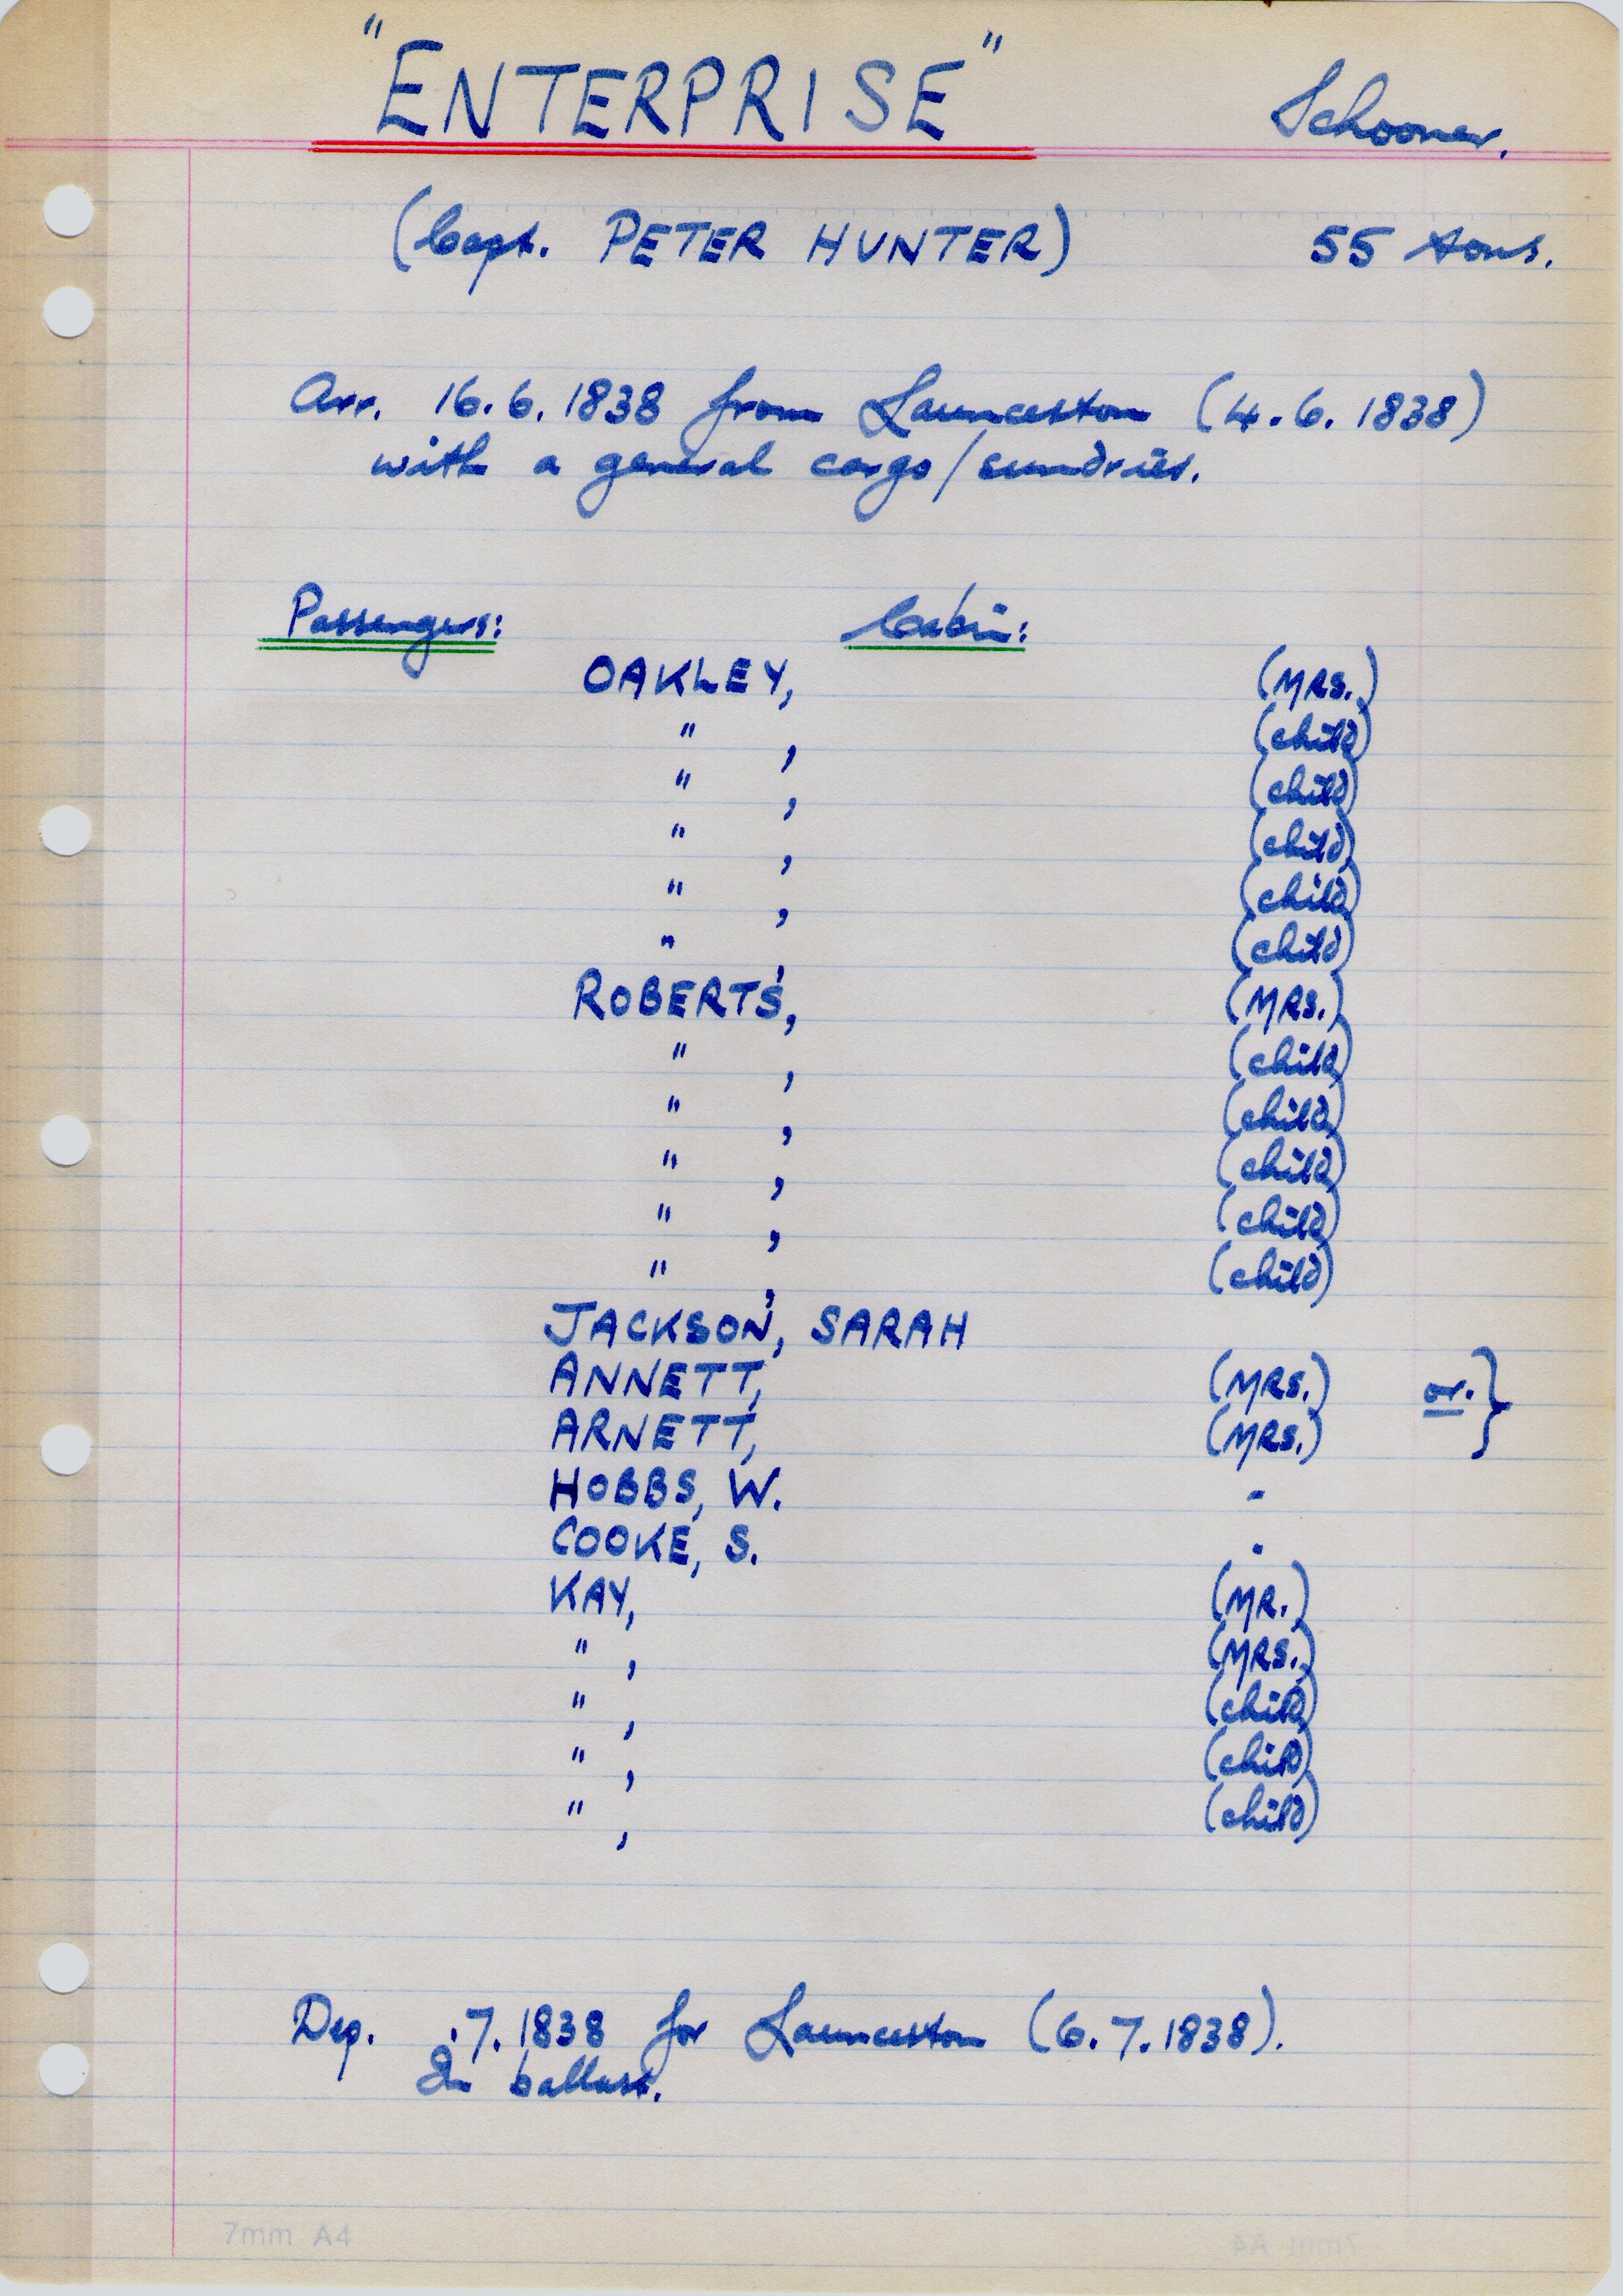 "ENTERPRISE" Schooner.
(Capt. PETER HUNTER) 55 tons.
Arr. 16.6.1838 from Launceston (4.6.1838)
with a general cargo/sundries.
Passengers: Cabin:
OAKLEY, (MRS.)
" , (child)
" , (child)
" , (child)
" , (child)
" , (child)
ROBERTS, (MRS.)
" , (child)
" , (child)
" , (child)
" , (child)
" , (child)
JACKSON, SARAH
ANNETT, (MRS.) or. }
ARNETT, (MRS.)
HOBBS, W. -
COOKE, S. .
KAY, (MR.)
" , (MRS.)
" , (child)
" , (child)
" , (child)
Dep. .7.1838 for Launceston (6.7.1838).
In ballast.
7mm A4
7mm A4